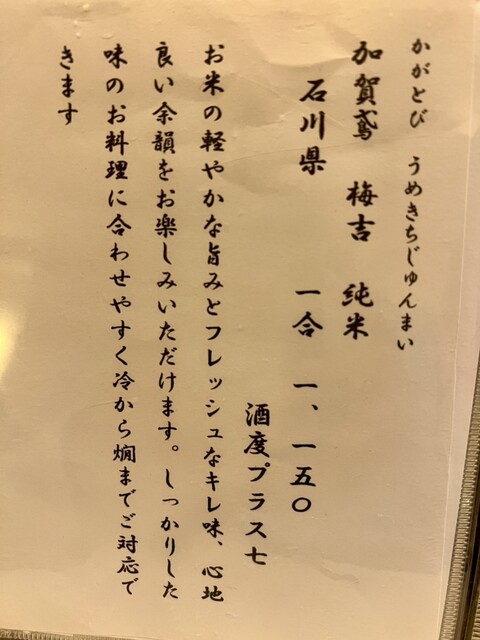 かがとび　うめきちじゅんまい
加賀鳶　梅吉　純米
石川県　一合　一、一五〇
酒度プラス七
お米の軽やかな旨みとフレッシュなキレ味、心地
良い余韻をお楽しみいただけます。しっかりした
味のお料理に合わせやすく冷から燗までご対応で
きます